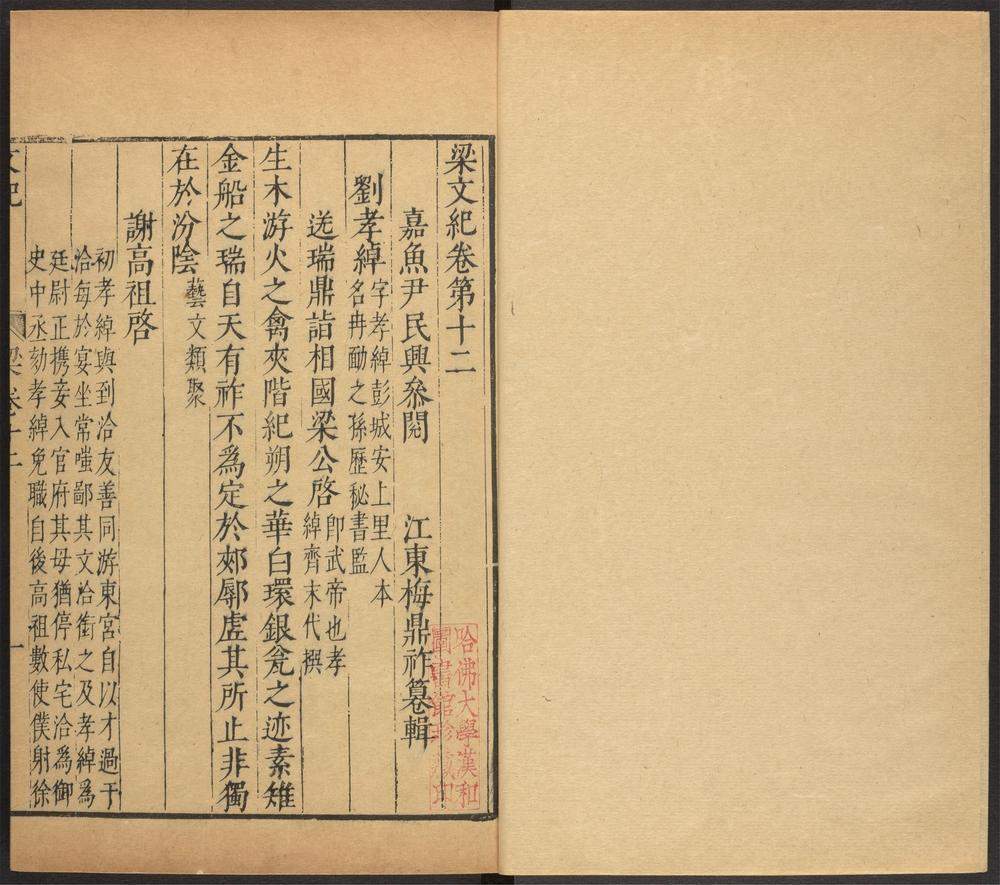 梁文紀卷第十二
嘉魚尹民興叅閱　江東梅鼎祚纂輯
劉孝綽
字孝綽彭城安上里人本
名冉勔之孫歷秘書監
送瑞鼎詣相國梁公啓
卽武帝也孝
綽齊末代撰
生木游火之禽夾階紀朔之華白環銀瓮之迹素雉
金船之瑞自天有祚不爲定於郟鄏虛其所止非獨
在於汾陰
藝文類聚
謝高祖啓
初孝綽與到洽友善同游東宮自以才過于
洽每於宴坐常嗤鄙其文洽銜之及孝綽爲
廷尉正携妾入官府其母猶停私宅洽爲御
史中丞劾孝綽免職自後高祖數使僕射徐
文紀
梁卷十二
一
哈佛大學漢和
圖書館珍藏印